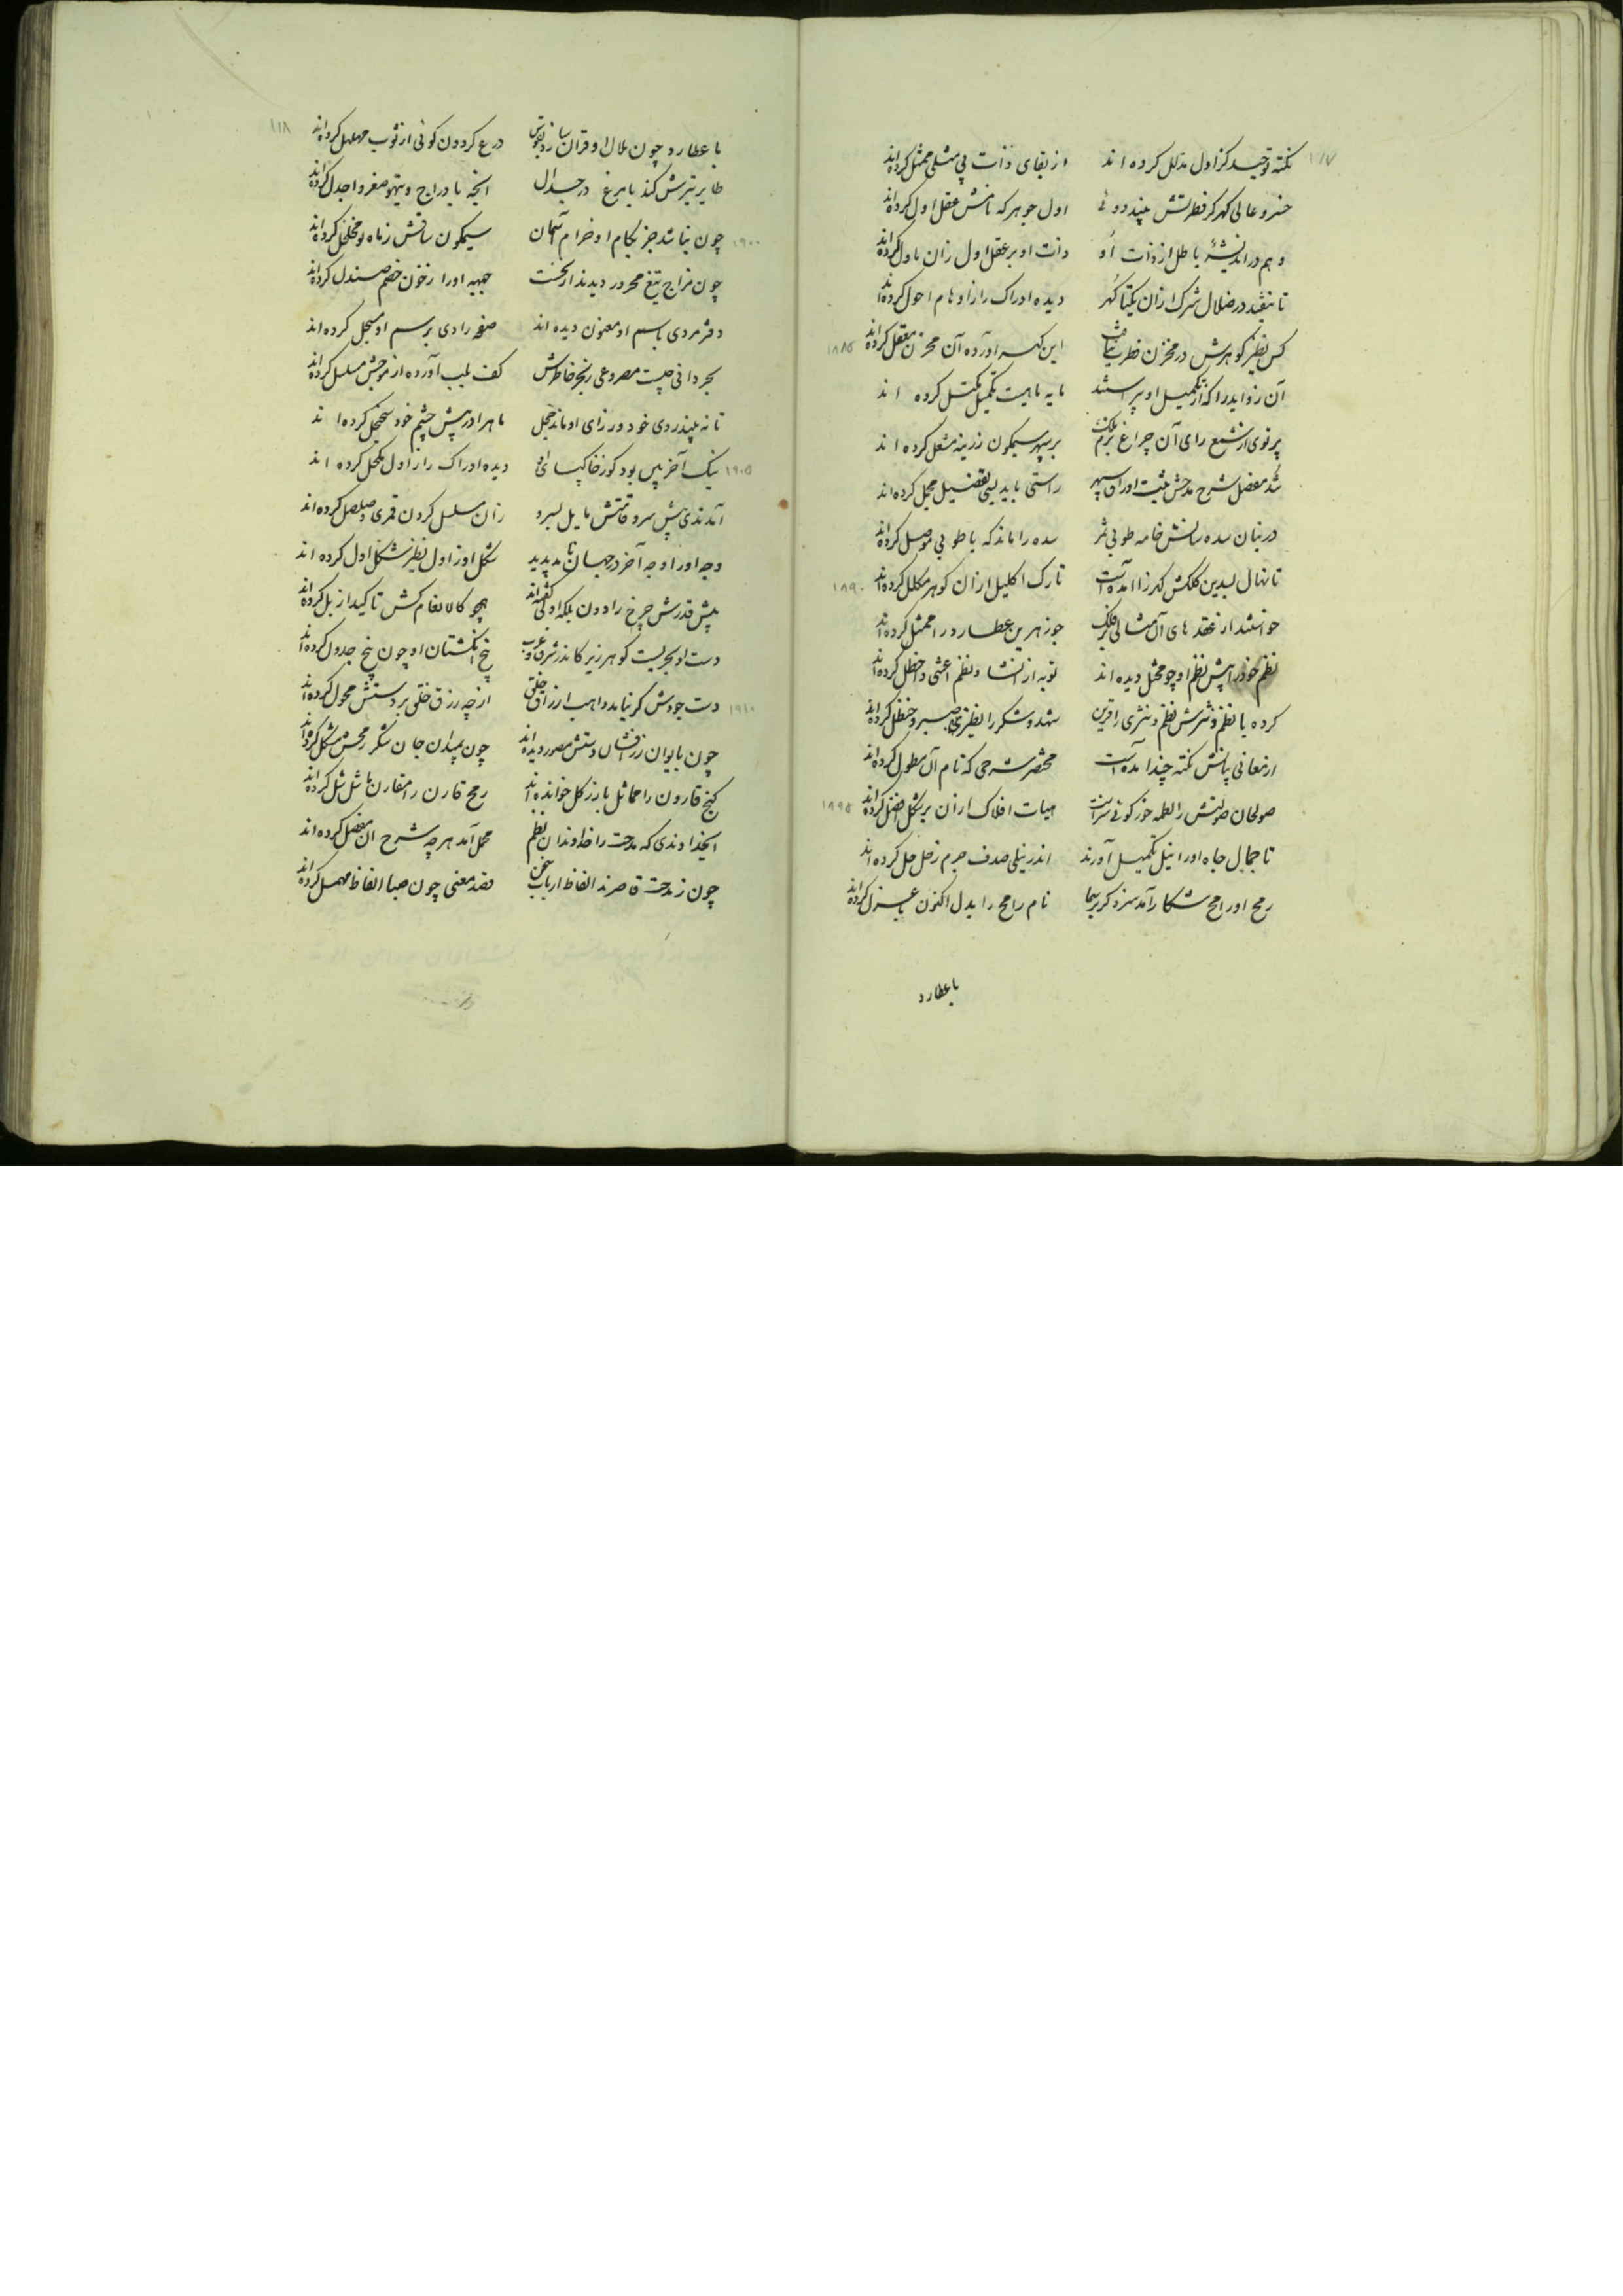 ۱۱۷
نکته توحید کز اول مدلل کرده اند از بقای ذات بی مثلی ممثل کرده‌اند
خسرو عالی گهر کز فطرتش بیند دوئی اول جوهر که نامش عقل اول کرده‌اند
وهم در اندیشهٔ باطل از ذات او ذات او بر عقل اول زان ماول کرده‌اند
تا نیفتد در ضلال شرک ازان یکتا گهر دیده ادراک را ز اوهام احول کرده‌اند
کس نظیر گوهرش در مخزن فطرت نیافت این گهر آورده آن مخزن مقفل کرده‌اند
۱۸۸۵
آن زواید را که از تکمیل او پیراستند مایه ماهیت تکمیل کرده اند
پرتوی از شمع رای آن چراغ بزم ملک بر سپهر سیمگون زرینه مشعل کرده اند
شد مفصل شرح مدحش هشت اوراق سپهر راستی باید بسی تفصیل مجمل کرده‌اند
در بنان سدره سانش خامه طوبی ثمر سدره را ماند که با طوبی موصل کرده‌اند
تا نهال کلکش گهرزا آمده است تارک اکلیل ازان گوهر مکلل کرده‌اند
۱۸۹۰
خواستند از عقدهای آن مثالی بر فلک جوزهر بین عطارد را ممثل کرده‌اند
نظم خود را پیش نظم او چو مختل دیده اند توبه از انشاد نظم اعشی و اخطل کرده‌اند
کرده با نظم و نثرش نظم و نثری را قرین شهد و شکر را نظیر صبر و حنظل کرده‌اند
از معانی بیانش نکته چند آمده است مختصر شرحی که نام آن مطول کرده‌اند
صولجان صولتش را لطمه خور گوئی سزاست هیات افلاک ازان بر شکل افضل کرده‌اند
۱۸۹۵
تا جمال جاه او را نیل تکمیل آورند اندر نیلی صدف جرم زحل حل کرده‌اند
رمح او رامح شکار آمد سزد نام رامح را بدل اکنون باعزل کرده‌اند
با عطارد
۱۱۸
با عطارد چون هلال او قران سازد بقوس درع گردون گوئی از ثوب مهلهل کرده‌اند
طایر تیرش کند با مرغ در جدال آنچه با دراج و تیهو صقر و اجدل کرده‌اند
چون نباشد جز بکام او خرام آسمان سیمگون ساقش ز ماه نو مخلخل کرده‌اند
۱۹۰۰
چون مزاج تیغ محرور دیدند از نخست جبهه او را ز خون خصم صندل کرده‌اند
دفتر مردی باسم او معنون دیده اند صفحه رادی برسم او مسجل کرده‌اند
بحر دانی چیست مصروعی ز رنج خاطرش کف بلب آورده از موجش مسلسل کرده‌اند
تا نه بیند روی خود وز رای او ماند خجل ماه را در پیش چشم خود سجنجل کرده اند
نیک آخر بین بود کوز خاکپای او دیده ادراک را ز اول مکحل کرده اند
۱۹۰۵
آمدندی پیش سرو قامتش مایل بسرو زان مسلسل گردن قمری و صلصل کرده‌اند
وجه او را وجه آخر در جهان نا مد پدید شکل او ز اول نظیر شکل اول کرده اند
پیش قدرش چرخ را دون بلکه ادنی گفته‌اند همچو کالانعام کش تاکید از بل کرده‌اند
دست او بحریست گوهر ریز کاندر شرق و غرب پنج انگشتان او چون پنج جدول کرده‌اند
دست جودش گر نیامد واهب ارزاق خلق از چه رزق خلق بر دستش محول کرده‌اند
۱۹۱۰
چون بایوان زر فشان دستش مصور دیده‌اند چون بمیدان جان شکر رمحش مشکل کرده‌اند
گنج قارون را مماثل با زر گل خوانده‌اند رمح قارن را مقارن با شل کرده‌اند
ایخداوندی که مدحت را خداوندان نظم مجمل آمد هرچه شرح آن مفصل کرده‌اند
چون ز مدحت قاصرند الفاظ ارباب سخن قصد معنی چون صبا الفاظ مهمل کرده‌اند